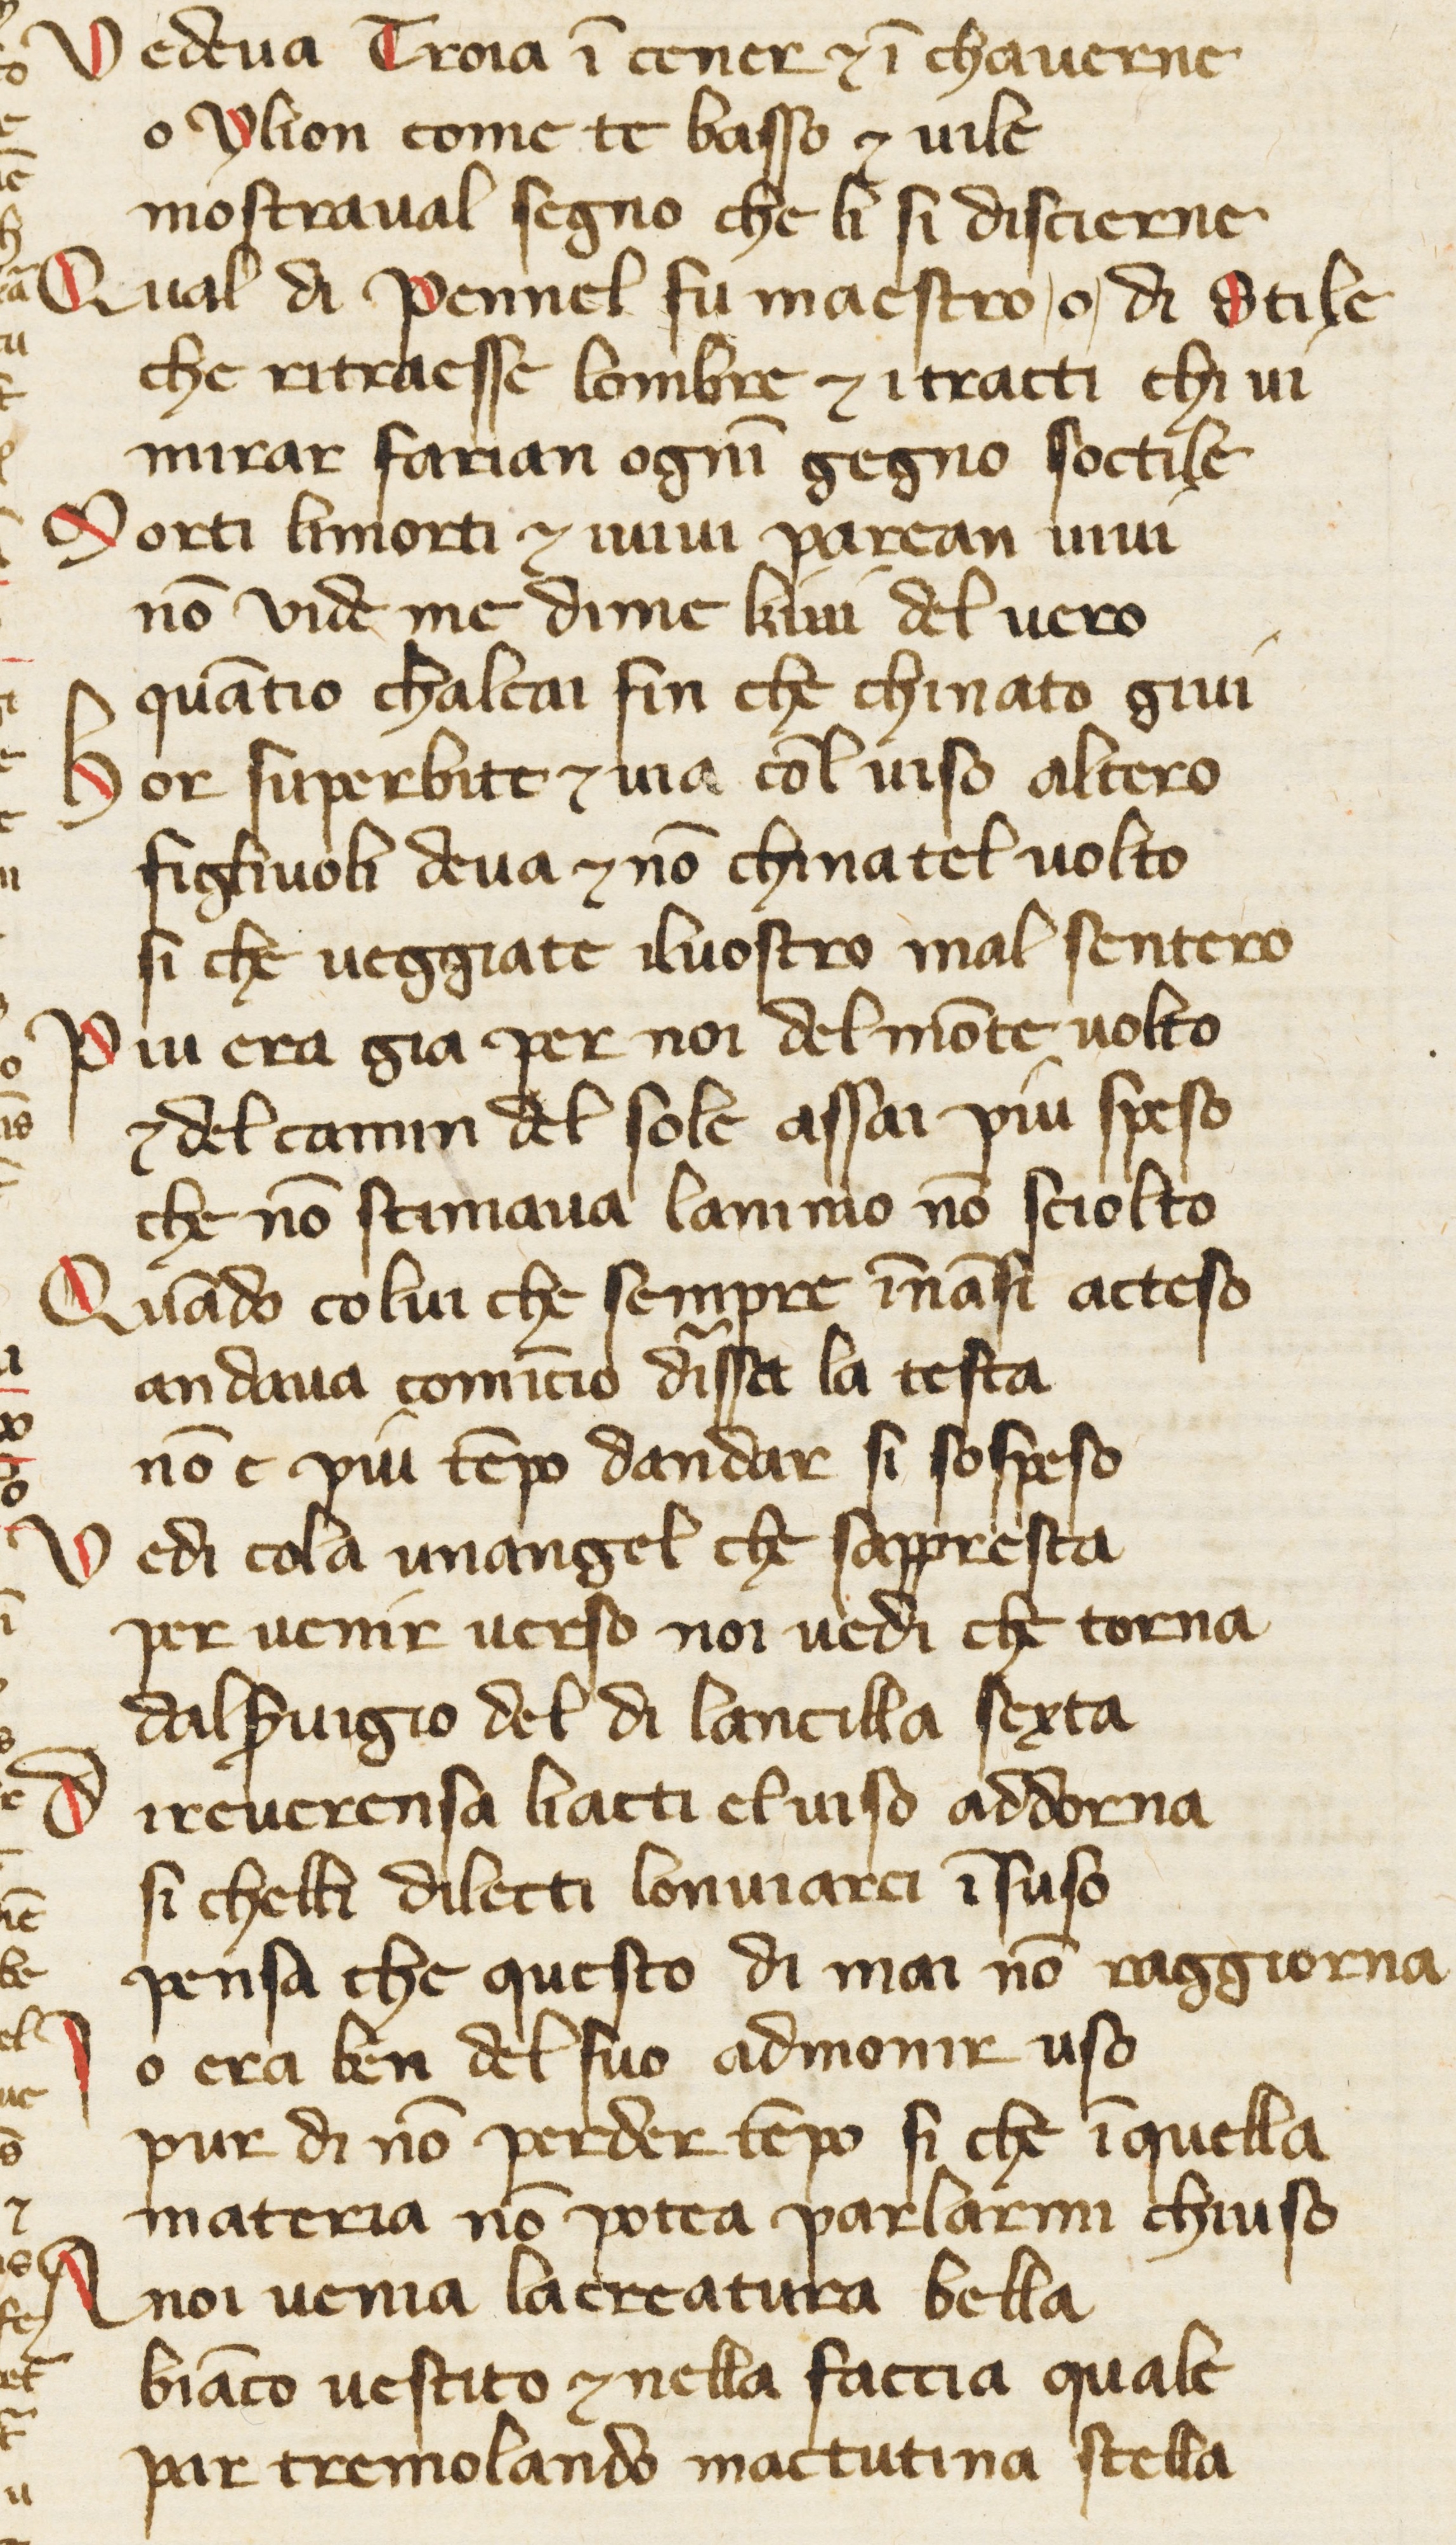 Vedeua Troia ī cener ⁊ ī chauerne
o ylion come te basso ⁊ uile
mostraual segno che li si discierne
Qual di Pennel fu maestro /o/ di Stile
che ritraesse lombre ⁊ i tracti chi ui
mirar farian ognī gegno soctile
Morti limorti ⁊ iuiui parean uiui
nō vide me dime kiui del uero
quātio chalcai fin che chinato giui
Hor superbite ⁊ uia cōl uiso altero
figliuoli deua ⁊ nō chinatel uolto
si che ueggiate iluostro mal sentero
Piu era gia per noi del mōte uolto
⁊ del camin del sole assai piu speso
che nō stimaua lanimo nō sciolto
Quādo colui che sempre īnāsi acteso
andaua comīcio dissa la testa
nō e piu tēpo dandar si sospeso
Vedi cola unangel che sappresta
per uenir uerso noi uedi che torna
dalꝑuigio del di lancilla sexta
Direuerensa liacti eluiso addorna
si chelli dilecti lonuiarci īsuso
pensa che questo di mai nō raggiorna
Io era ben del suo admonir uso
pur di nō perder tēpo si che īquella
materia nō potea parlarmi chiuso
A noi uenia lacreatura bella
biāco uestito ⁊ nella faccia quale
par tremolando mactutina stella